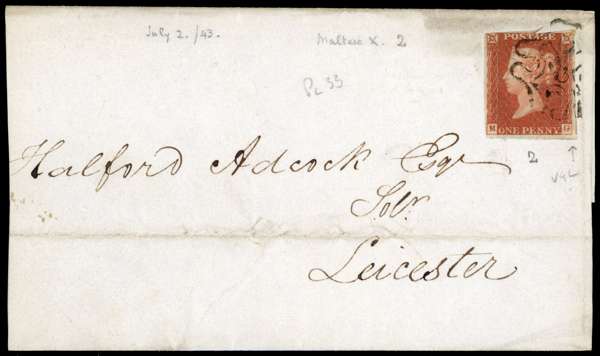 July 2. /43.
Maltese X. 2
PL 33
POSTAGE
ONE PENNY
2
Halford Adcock Esqr
Solr.
Leicester